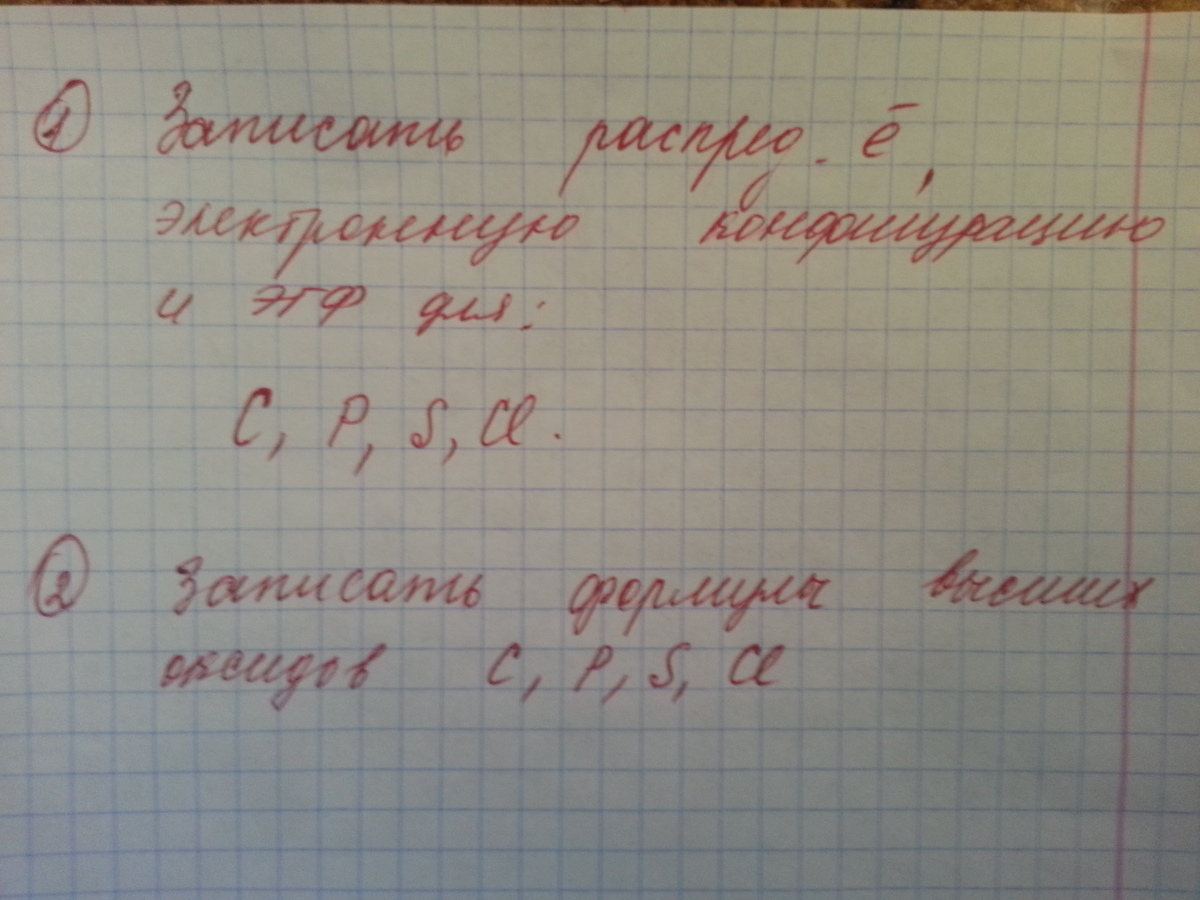 ① Записать распред. ē,
электронную конфигурацию
и ЭГФ для:
C, P, S, Cl.
② Записать формулы высших
оксидов C, P, S, Cl